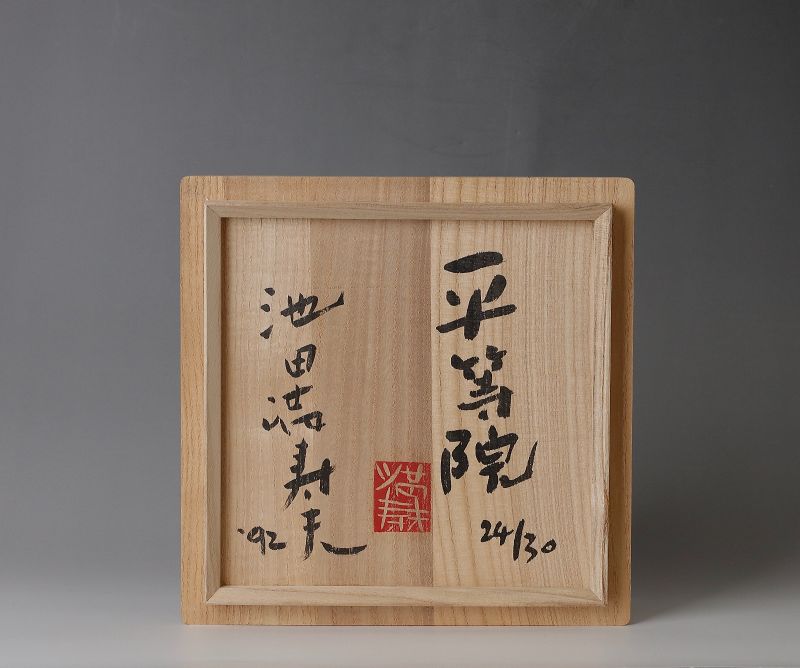 平等院
24/30
池田満寿夫
'92
満寿夫